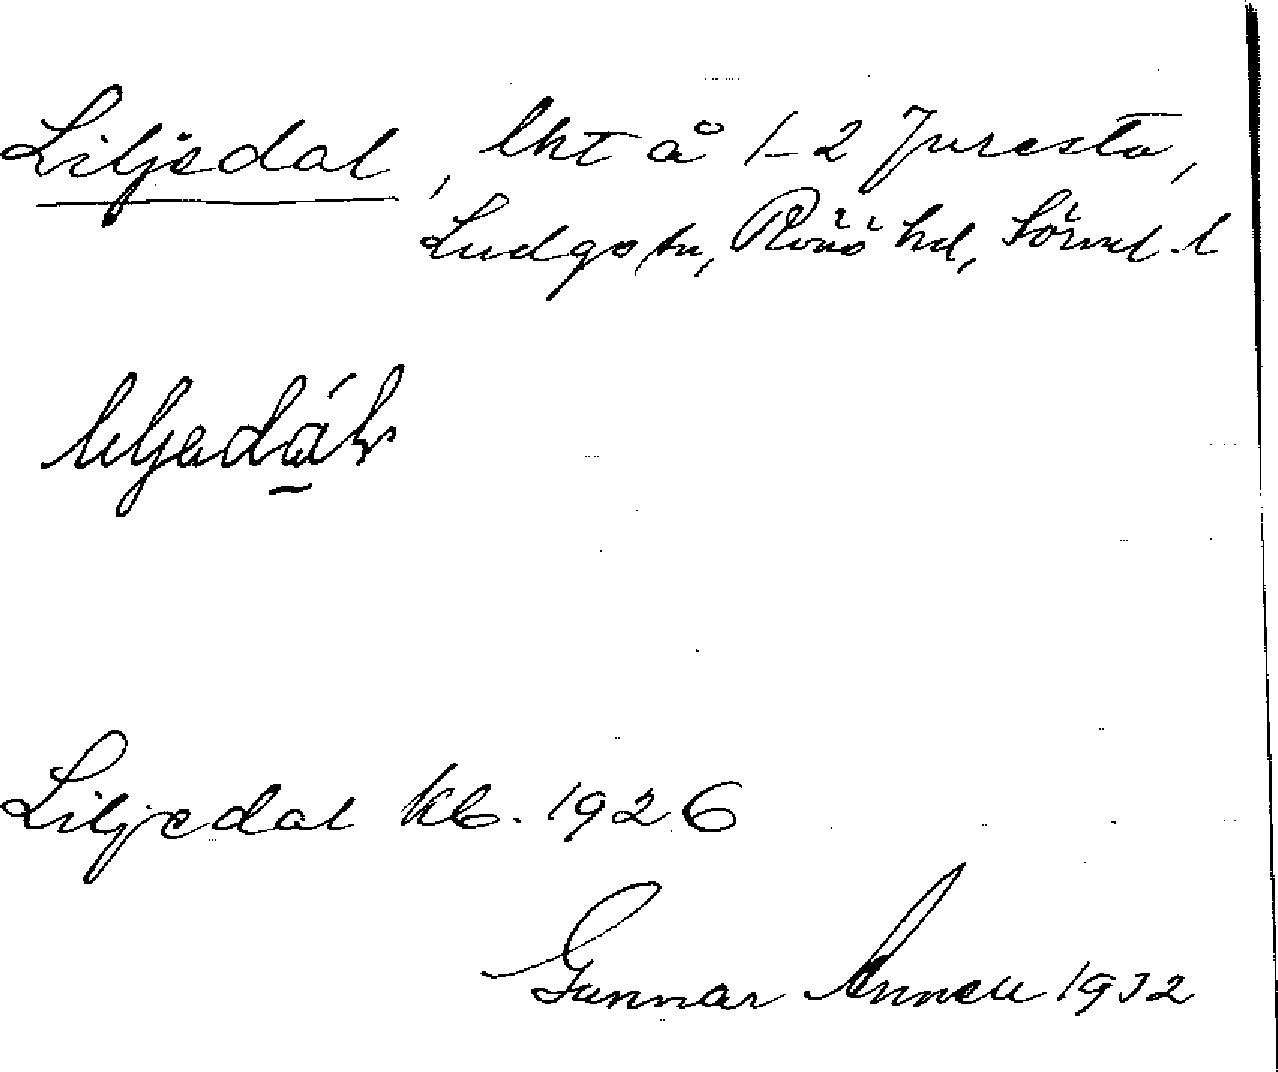 Liljedal, lht å 1-2 Juresta,
Ludgo sn, Rönö hd, Sörml. l
Liljedal kb. 1926
Gunnar Annell 1932